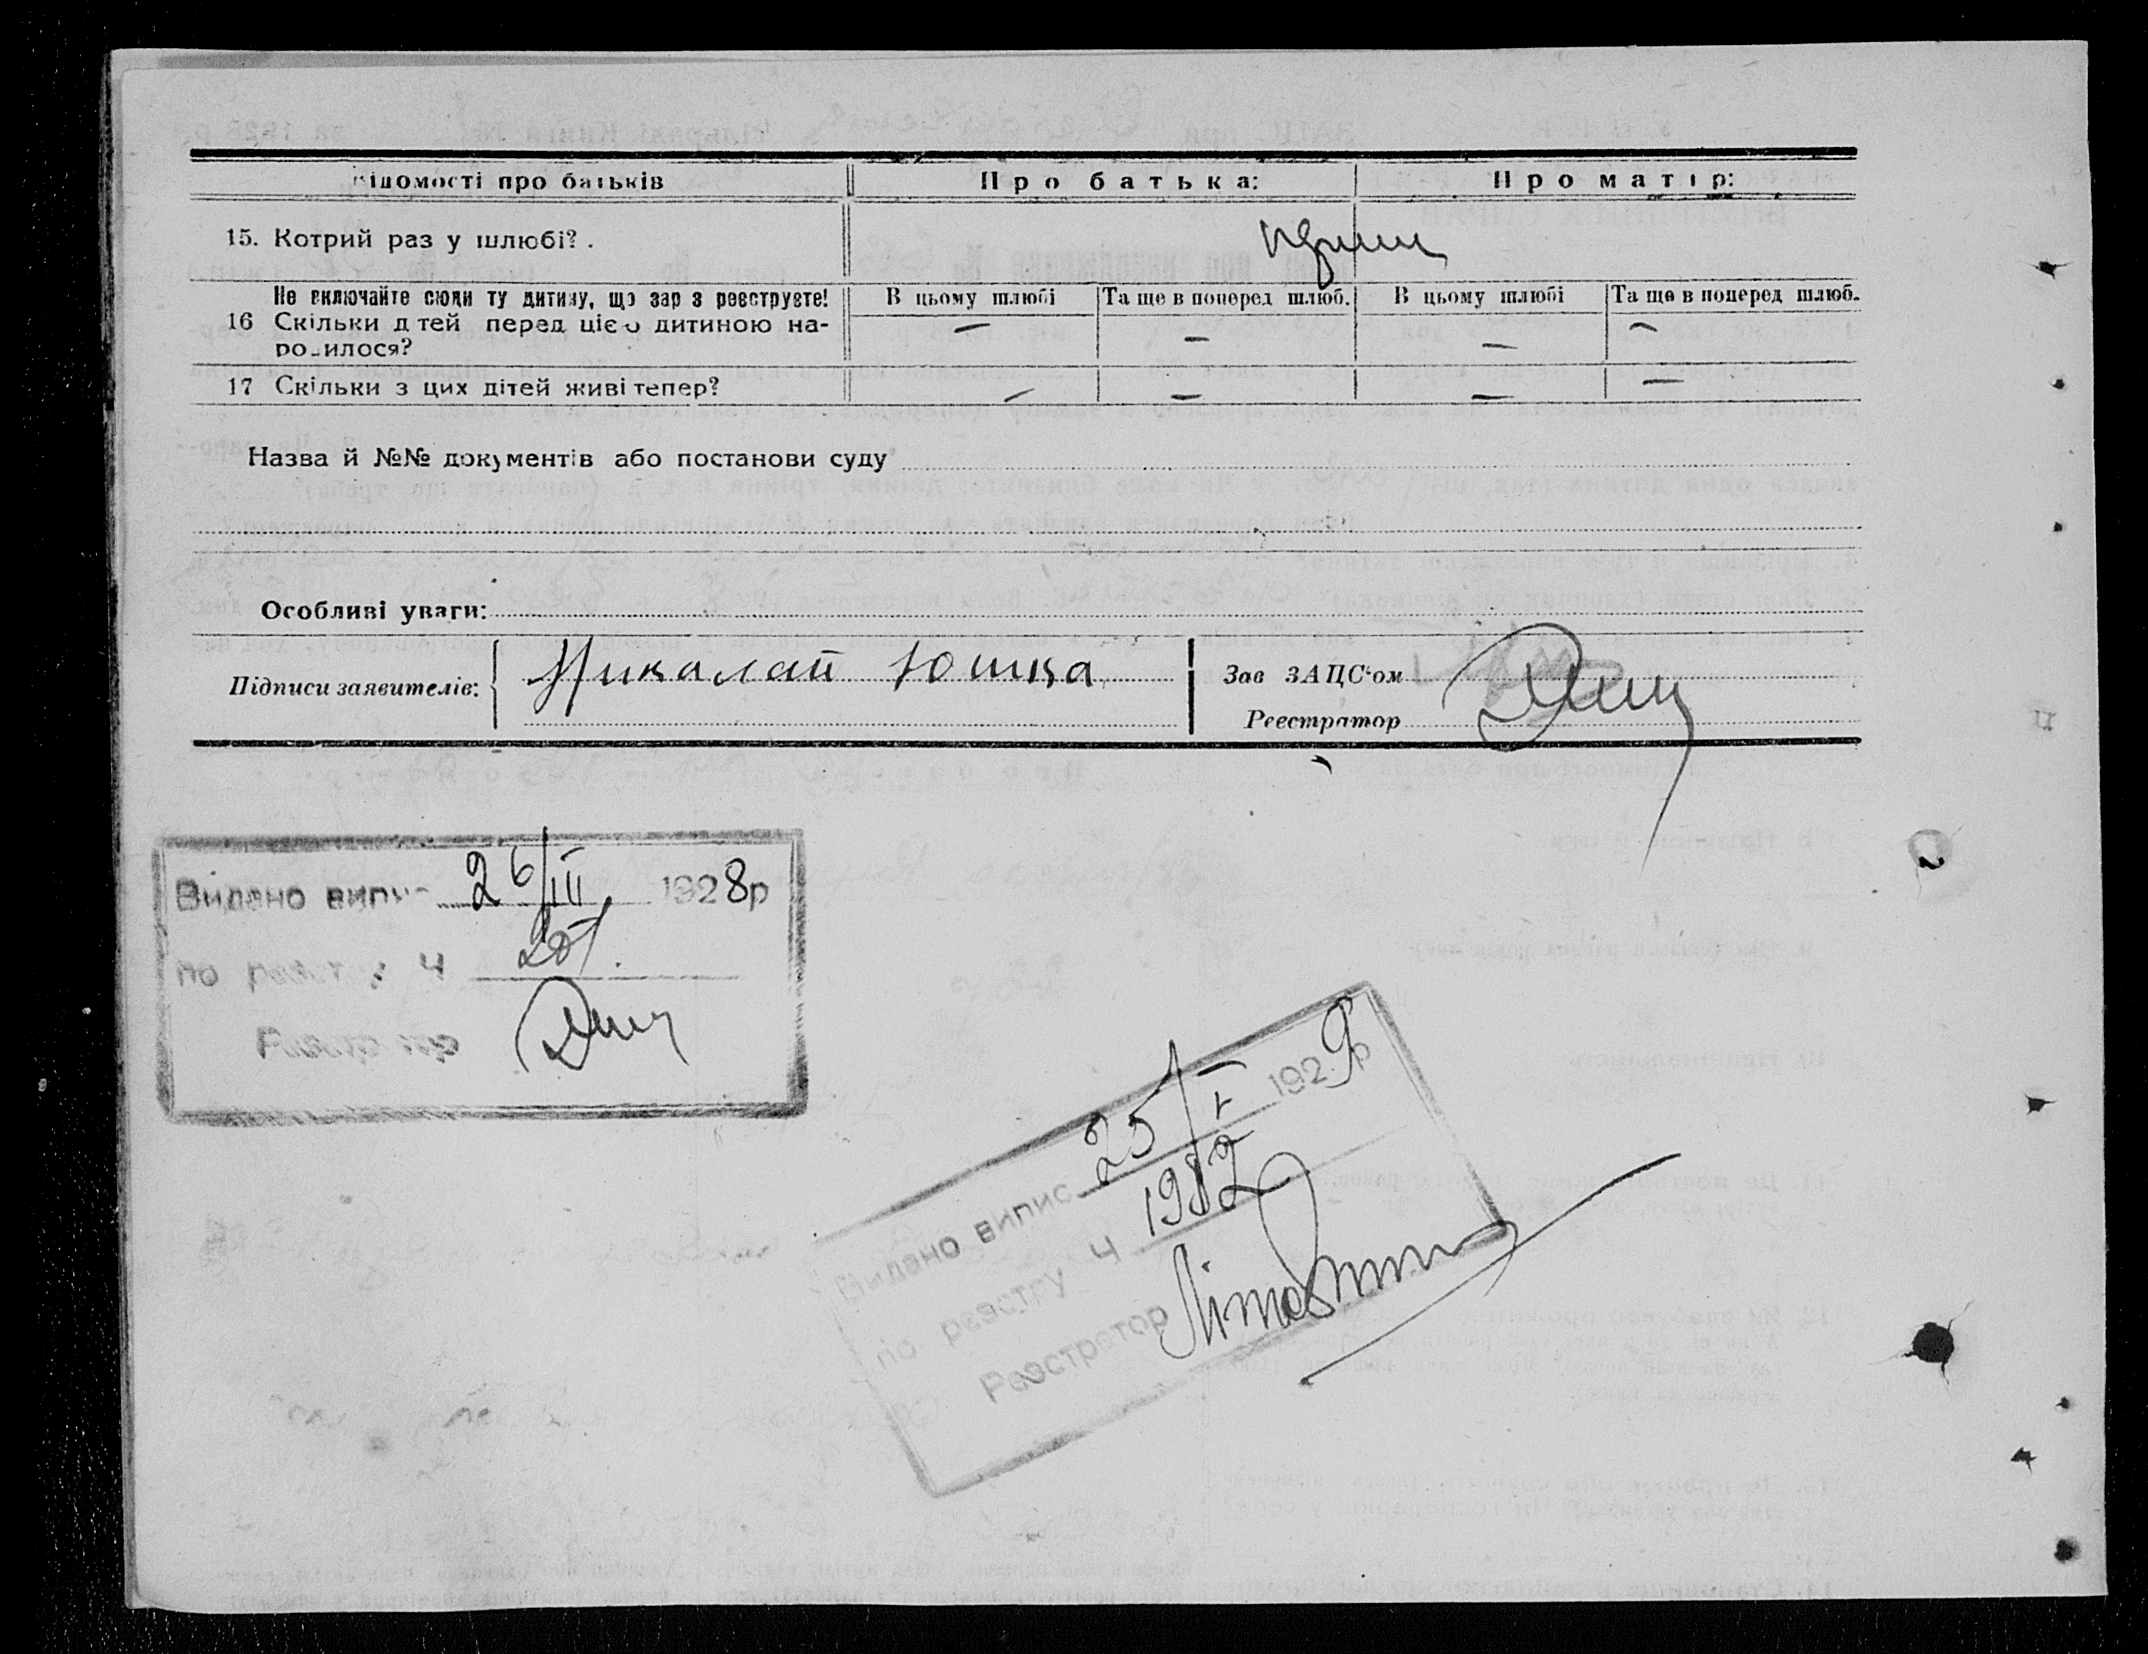 Відомості про батьків Про батька: Про матір:
15. Котрий раз у шлюбі? .
Не включайте сюди ту дитину, що зараз реєструєте! В цьому шлюбі Та ще в поперед шлюб. В цьому шлюбі Та ще в поперед шлюб.
16 Скільки дітей перед цією дитиною на- — — — —
родилося?
17 Скільки з цих дітей живі тепер? — — — —
Назва й №№ документів або постанови суду
Особливі уваги:
Підписи заявителів: Микалай Юшка Зав ЗАЦС'ом
Реєстратор
Видано випис 26/III 1928р
по реєстру Ч
Реєстратор
Видано випис 25/I 1929р
по реєстру Ч 1982
Реєстратор